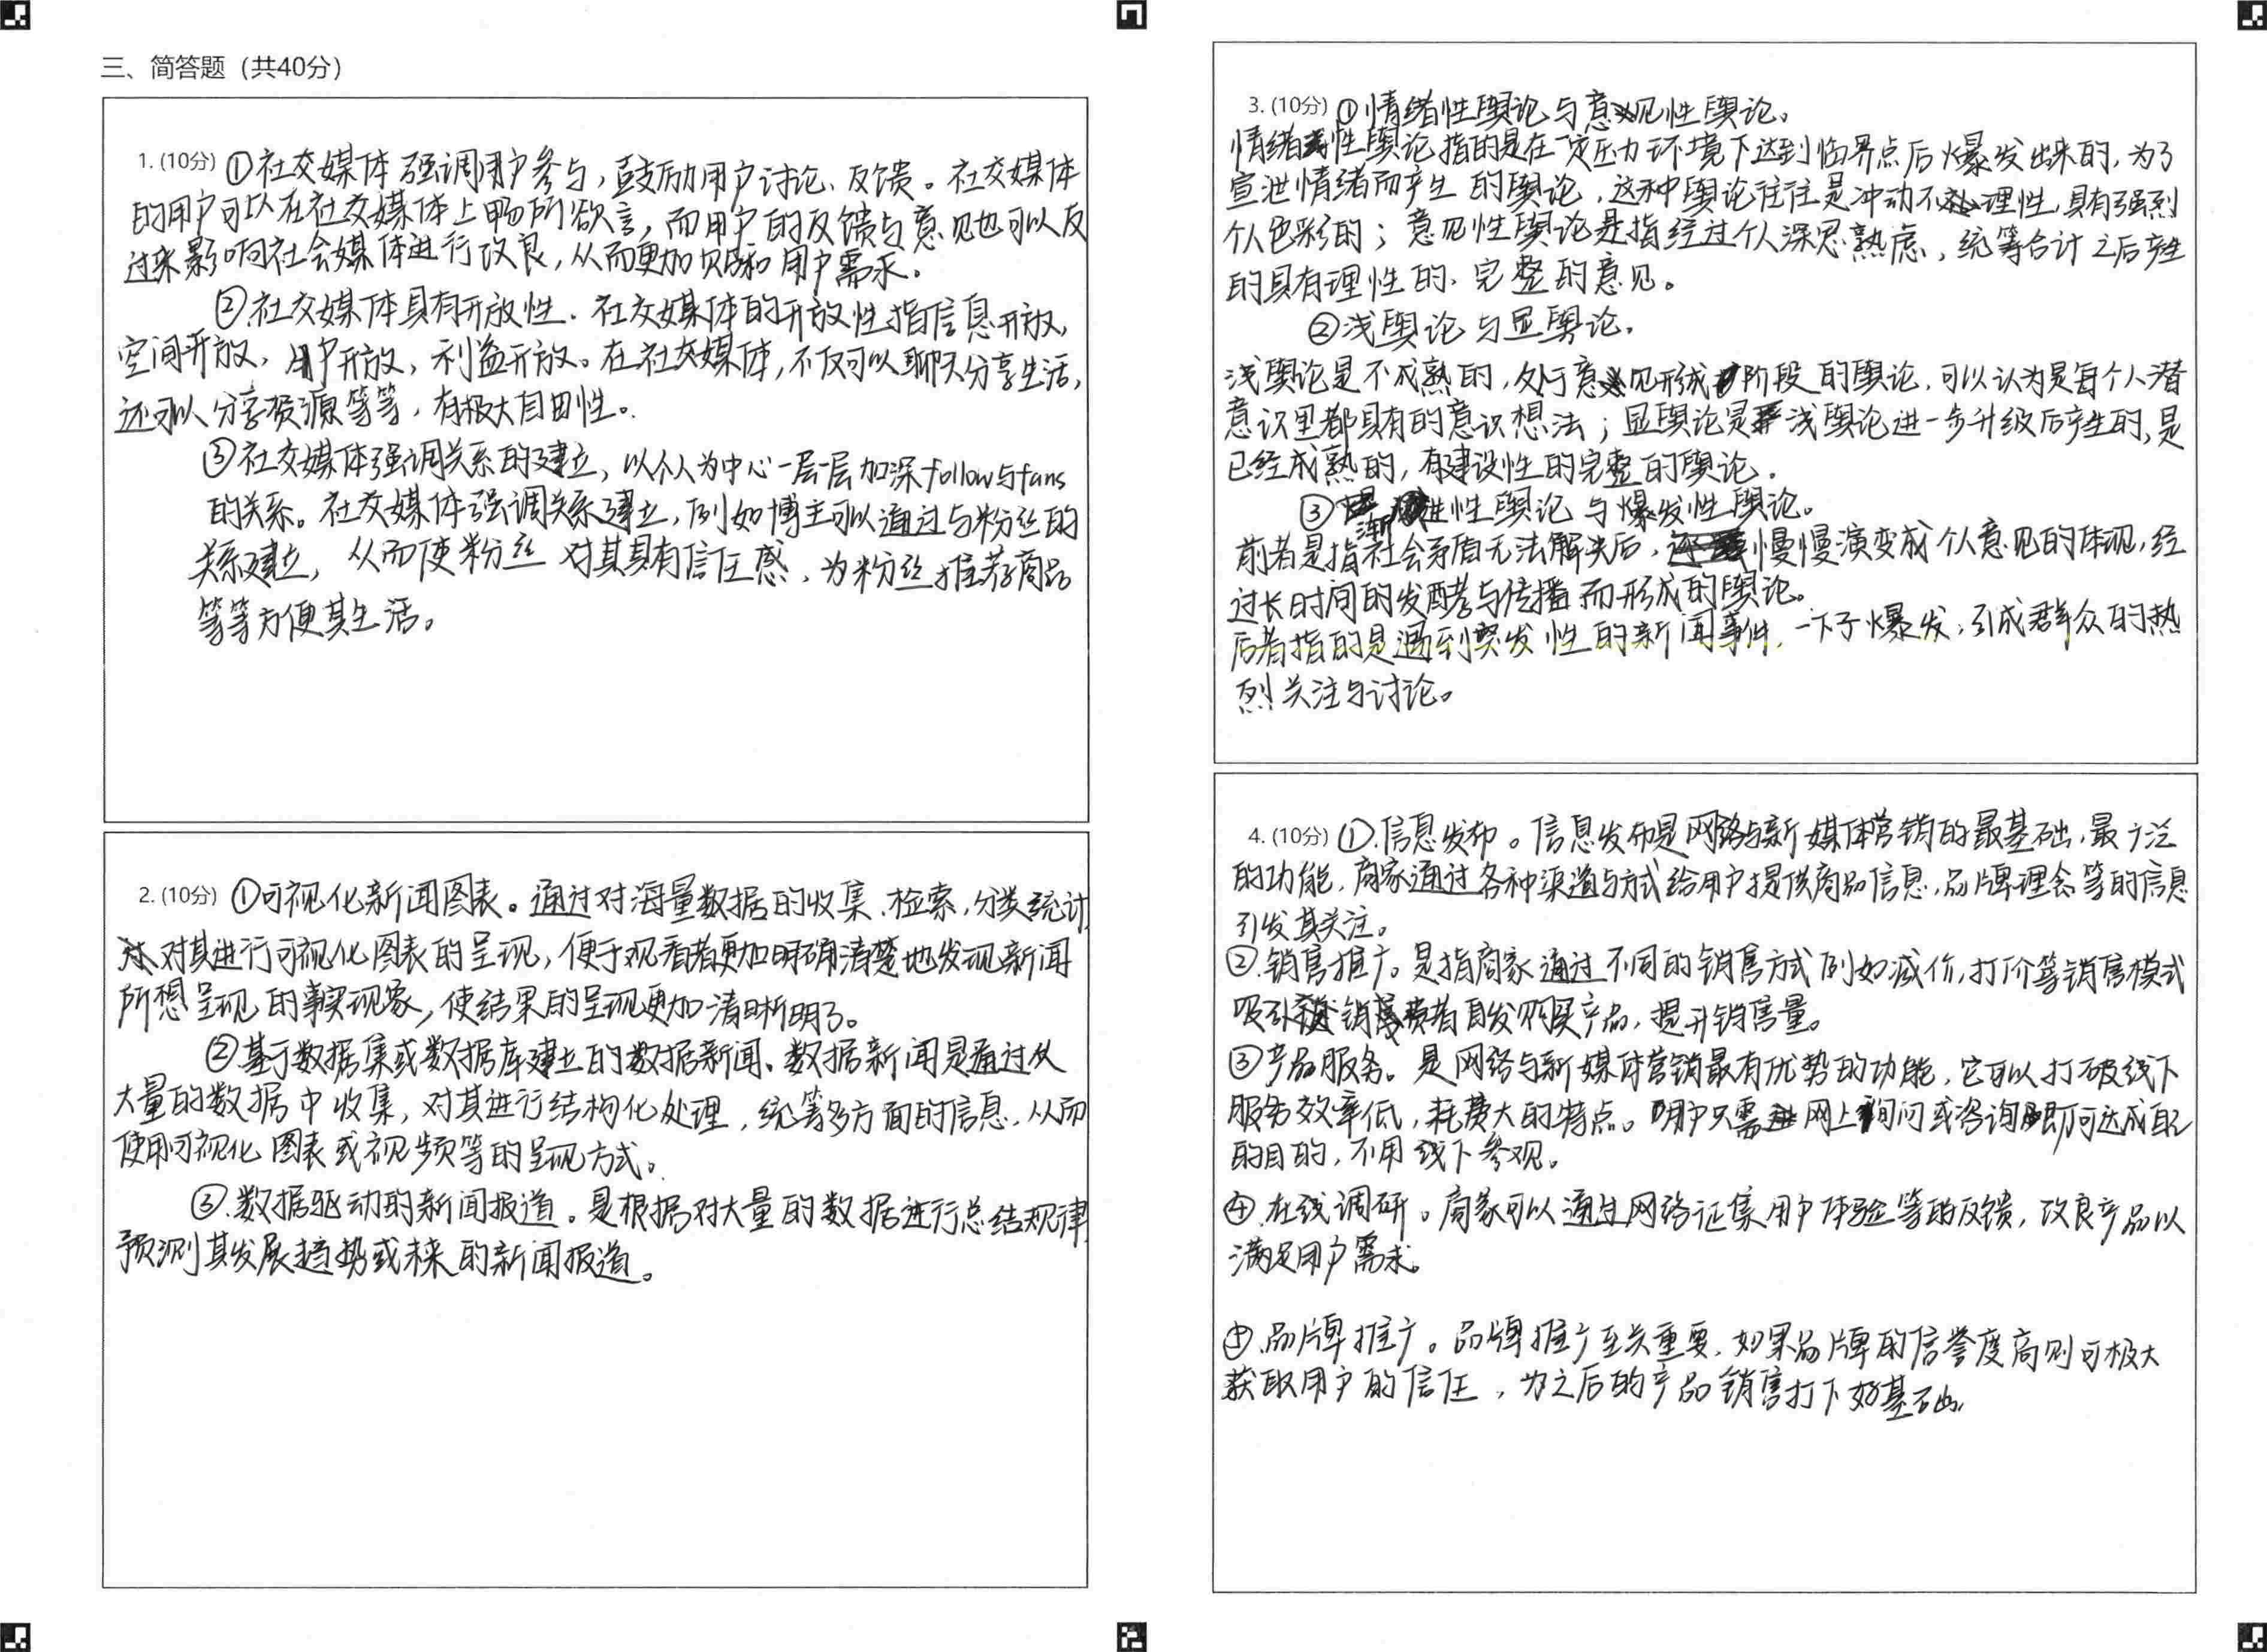 三、简答题（共40分）
1. (10分) ①社交媒体强调用户参与，鼓励用户讨论、反馈。社交媒体
的用户可以在社交媒体上畅所欲言，而用户的反馈与意见也可以反
过来影响社会媒体进行改良，从而更加贴和用户需求。
②.社交媒体具有开放性. 社交媒体的开放性指信息开放，
空间开放，用户开放，利益开放。在社交媒体，不仅可以聊天分享生活，
还可以分享资源等等，有极大自由性。
③社交媒体强调关系的建立，以个人为中心一层一层加深follow与fans
的关系。社交媒体强调关系建立，例如博主可以通过与粉丝的
关系建立，从而使粉丝对其具有信任感，为粉丝推荐商品
等等方便其生活。
2. (10分) ①可视化新闻图表。通过对海量数据的收集、检索，分类统计
对其进行可视化图表的呈现，便于观看者更加明确清楚地发现新闻
所想呈现的事实现象，使结果的呈现更加清晰明了。
②基于数据集或数据库建立的数据新闻、数据新闻是通过从
大量的数据中收集，对其进行结构化处理，统筹多方面的信息，从而
使用可视化图表或视频等的呈现方式。
③.数据驱动的新闻报道。是根据对大量的数据进行总结规律
预测其发展趋势或未来的新闻报道。
3. (10分) ①情绪性舆论与意见性舆论。
情绪性舆论指的是在一定压力环境下达到临界点后爆发出来的，为了
宣泄情绪而产生的舆论，这种舆论往往是冲动不理性，具有强烈
个人色彩的；意见性舆论是指经过个人深思熟虑，统筹合计之后产生
的具有理性的、完整的意见。
②浅舆论与显舆论。
浅舆论是不成熟的，处于意见形成阶段的舆论，可以认为是每个人潜
意识里都具有的意识想法；显舆论是浅舆论进一步升级后产生的，是
已经成熟的，有建设性的完整的舆论。
③渐进性舆论与爆发性舆论。
前者是指社会矛盾无法解决后，慢慢演变成个人意见的体现，经
过长时间的发酵与传播而形成的舆论。
后者指的是遇到突发性的新闻事件，一下子爆发，引成群众的热
烈关注与讨论。
4. (10分) ①.信息发布。信息发布是网络与新媒体营销的最基础，最广泛
的功能，商家通过各种渠道与方式给用户提供商品信息，品牌理念等的信息
引发其关注。
②.销售推广。是指商家通过不同的销售方式例如减价，打价等销售模式
吸引消费者自发购买产品，提升销售量。
③产品服务。是网络与新媒体营销最有优势的功能，它可以打破线下
服务效率低，耗费大的特点。用户只需网上询问或咨询即可达成自己
的目的，不用线下参观。
④.在线调研。商家可以通过网络征集用户体验等的反馈，改良产品以
满足用户需求。
⑤.品牌推广。品牌推广至关重要，如果品牌的信誉度高则可极大
获取用户的信任，为之后的产品销售打下好基础。